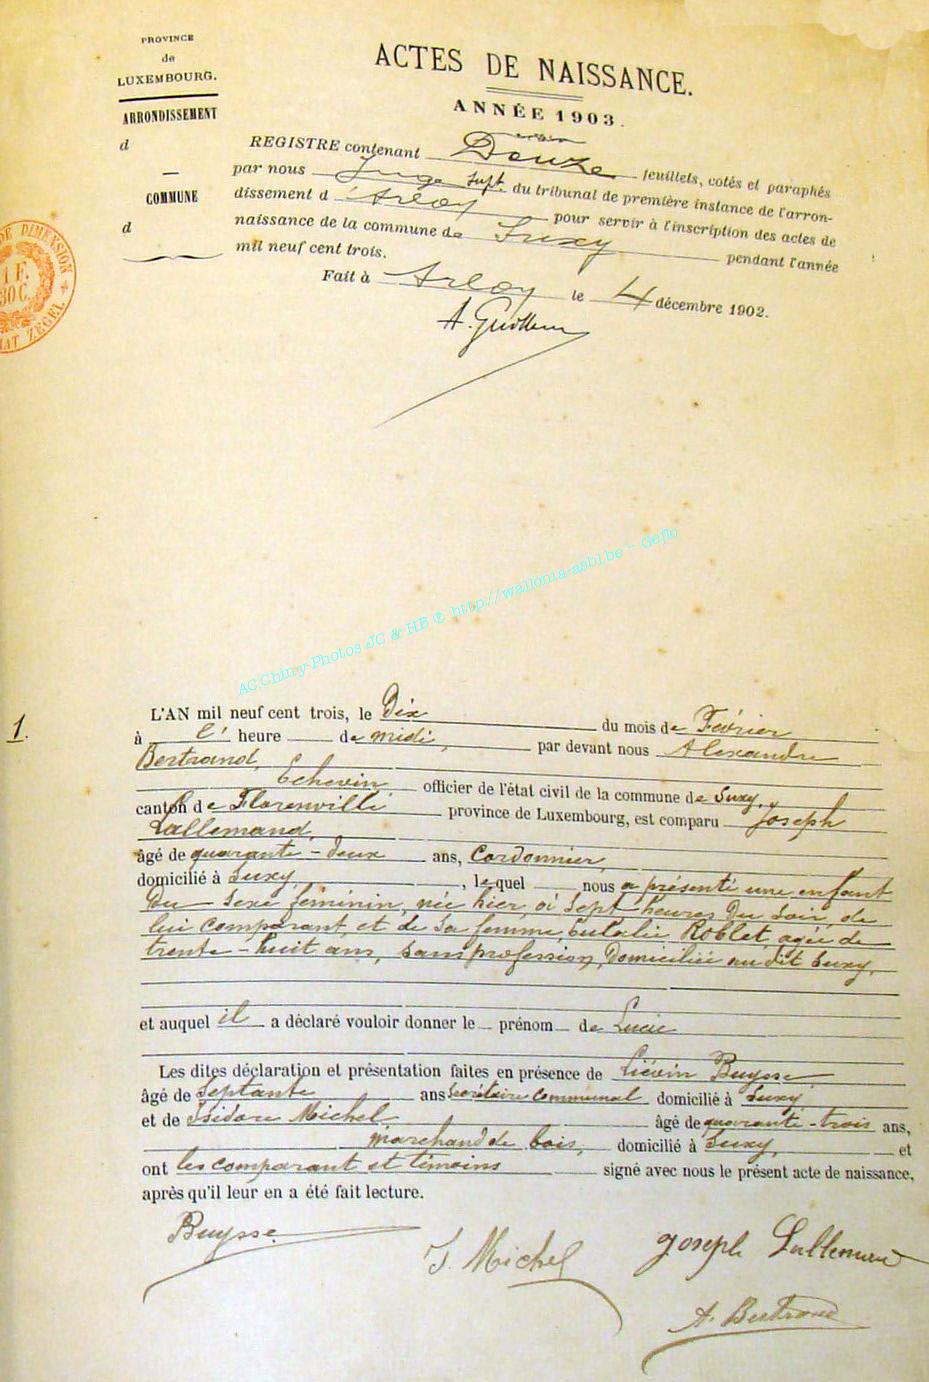 PROVINCE
de
LUXEMBOURG.
ARRONDISSEMENT
d
COMMUNE
d
ACTES DE NAISSANCE.
ANNÉE 1903.
REGISTRE contenant Douze feuillets, cotés et paraphés
par nous Juge Supt. du tribunal de première instance de l'arron-
dissement d'Arlon pour servir à l'inscription des actes de
naissance de la commune de Suxy pendant l'année
mil neuf cent trois.
Fait à Arlon le 4 décembre 1902.
DE DIMENSION
1 F.
30 C.
ZEGEL
AC.Chiny-Photos JC & HB ® http://wallonia-asbl.be - Geflo
1.
L'AN mil neuf cent trois, le Dix du mois de Février
à l' heure de midi, par devant nous Alexandre
Bertrand,
Echevin, officier de l'état civil de la commune de Suxy,
canton de Florenville province de Luxembourg, est comparu Joseph
Lallemand,
âgé de quarante-deux ans, cordonnier,
domicilié à Suxy, lequel nous a présenté une enfant
du sexe féminin, née hier, à sept heures du soir, de
lui comparant, et de sa femme Eulalie Roblet, agée de
trente-huit ans, sans profession, domiciliée au dit Suxy,
et auquel il a déclaré vouloir donner le prénom de Lucie
Les dites déclaration et présentation faites en présence de Liévin Buysse,
âgé de septante ans secrétaire communal domicilié à Suxy
et de Isidore Michel âgé de quarante-trois ans,
marchand de bois, domicilié à Suxy, et
ont les comparant et témoins signé avec nous le présent acte de naissance,
après qu'il leur en a été fait lecture.
Buysse
I. Michel
Joseph Lallemand
A. Bertrand